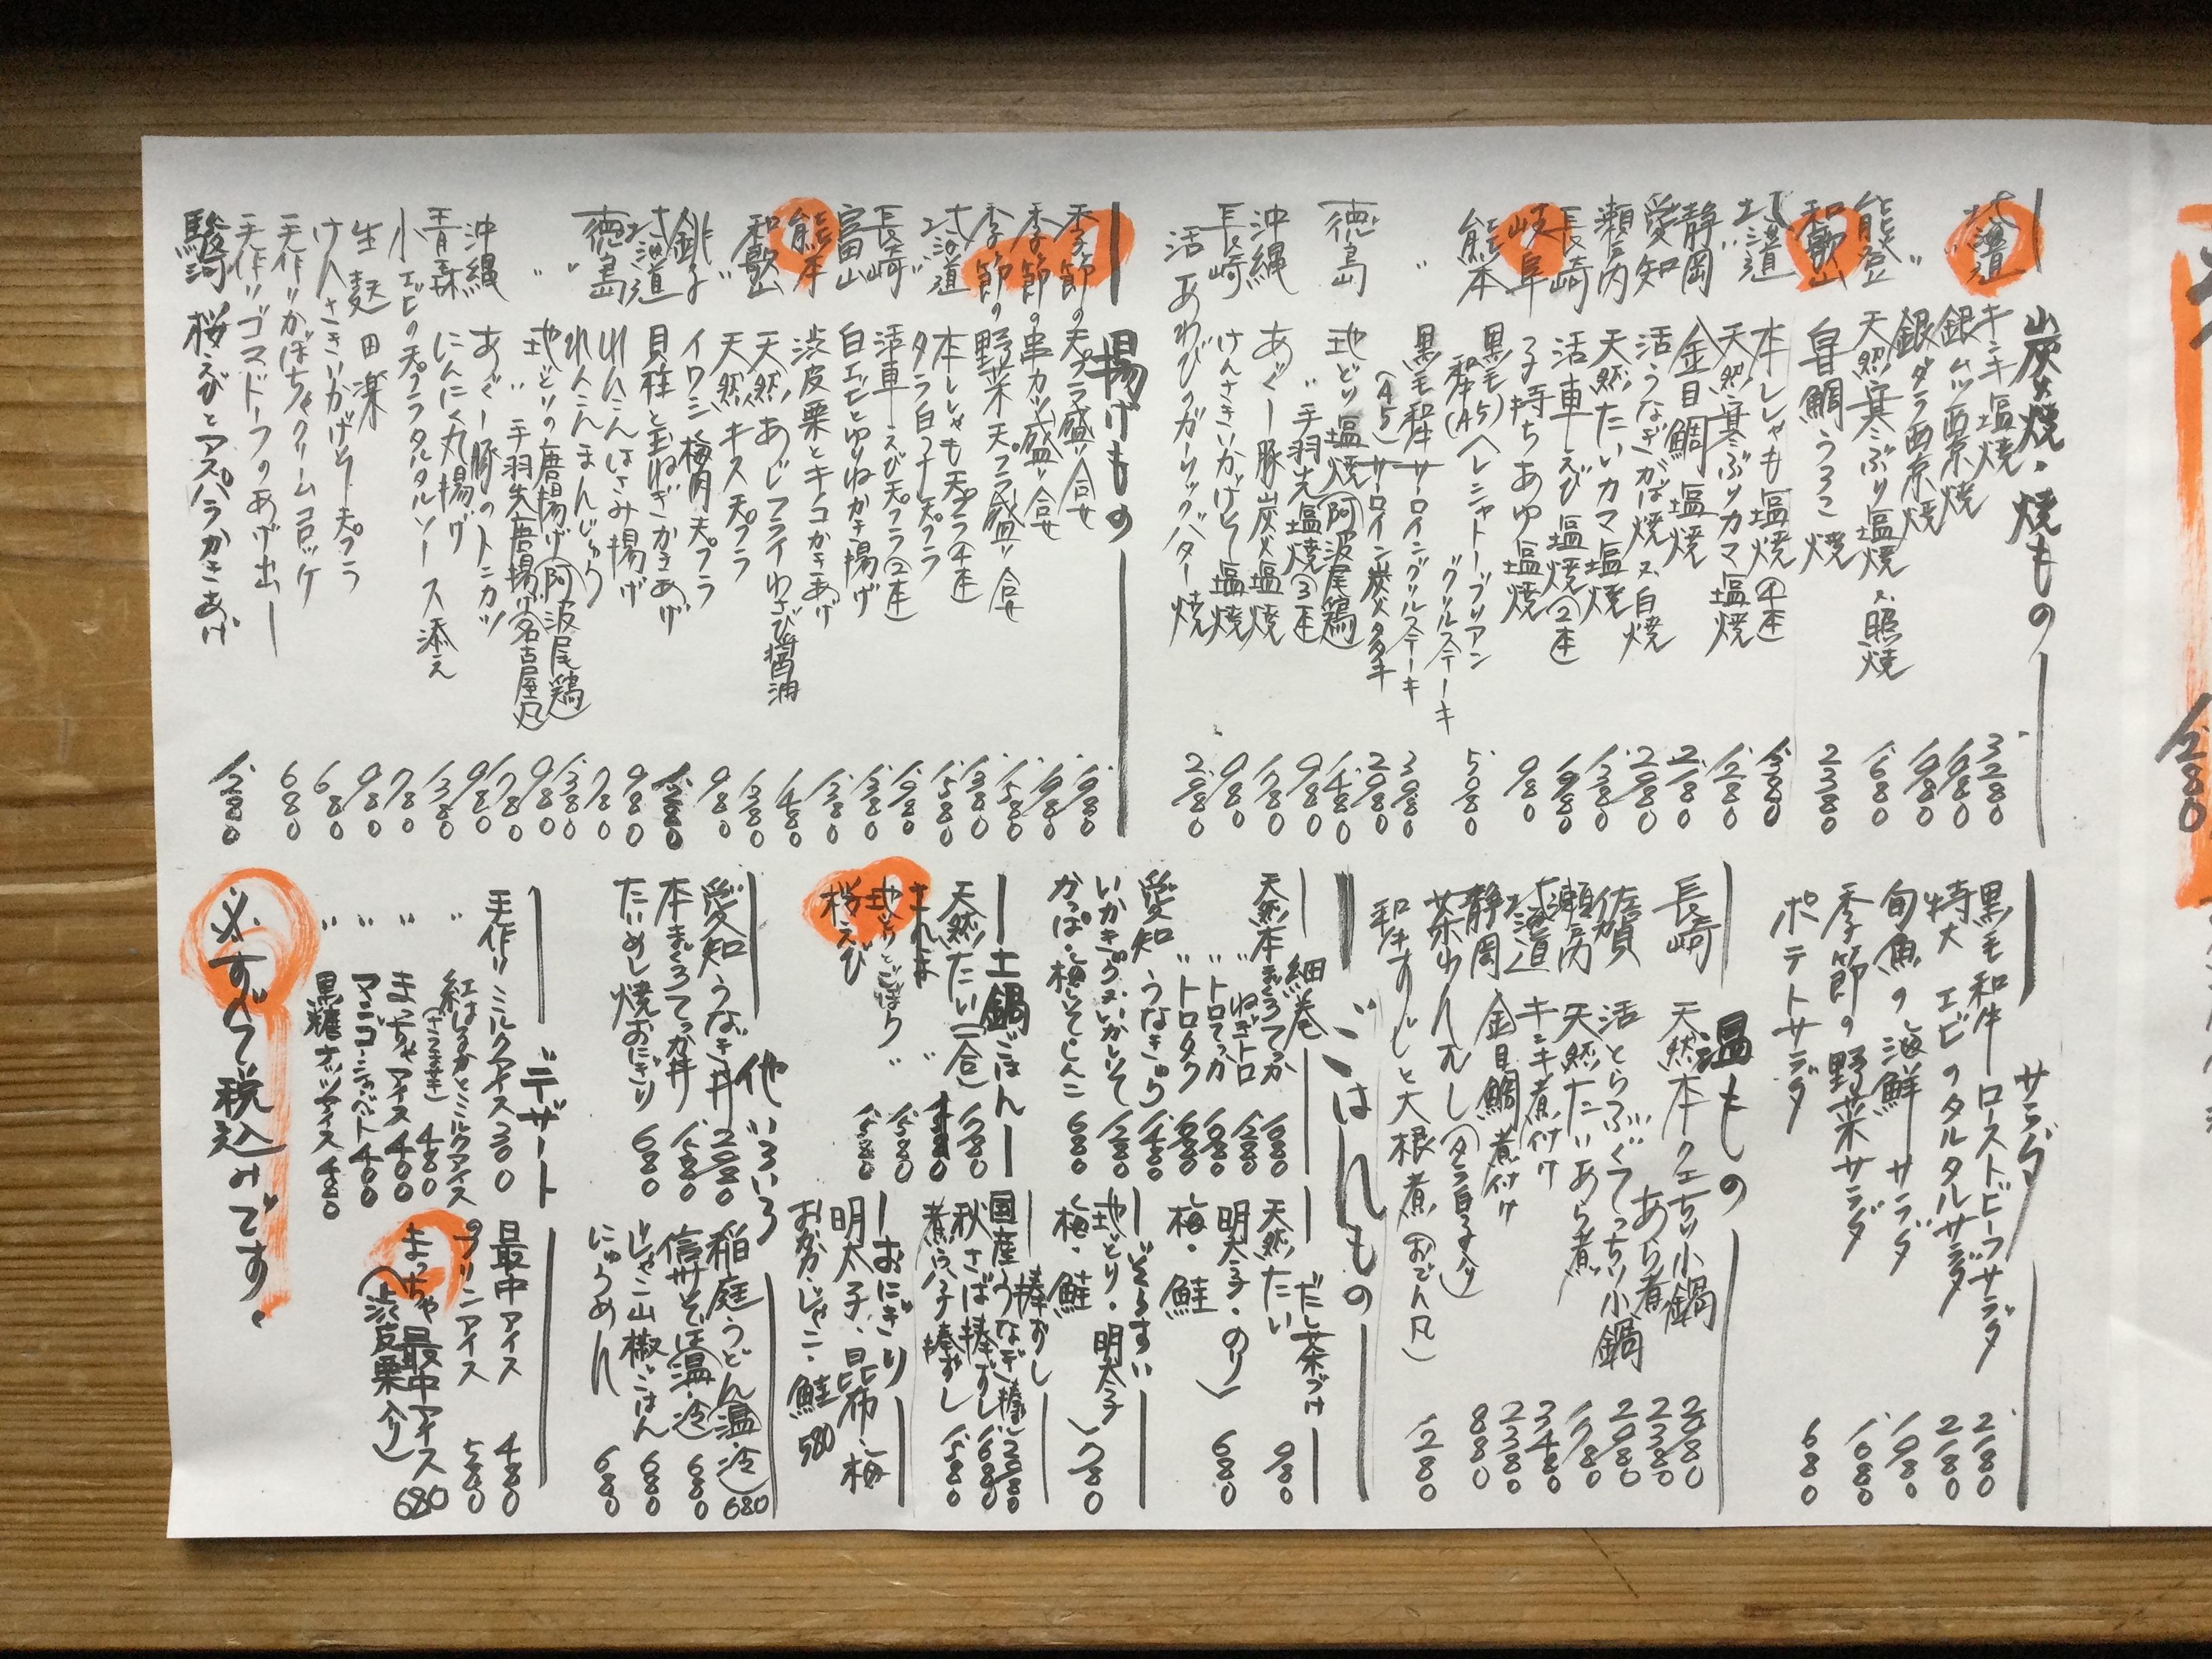 炭火焼・焼もの
北海道 キンキ塩焼 3280
〃 銀ムツ西京焼 1980
銀ダラ西京焼 1980
能登 天然寒ぶり塩焼又照焼 1680
和歌山 甘鯛うろこ焼 2380
北海道 本ししゃも塩焼(4本) 1380
〃 天然寒ぶりカマ塩焼 1280
静岡 金目鯛塩焼 2180
愛知 活うなぎかば焼又白焼 2980
瀬戸内 天然たいカマ塩焼 1380
長崎 活車えび塩焼(2本) 1980
岐阜 子持ちあゆ塩焼 980
熊本 黒毛和牛(A5)ヘレシャトーブリアングリルステーキ 5080
〃 黒毛和牛(A5)サーロイングリルステーキ 3080
サーロイン炭火タタキ 2980
徳島 地どり塩焼(阿波尾鶏) 1480
〃 手羽先塩焼(3本) 980
沖縄 あぐー豚炭火塩焼 1780
長崎 けんさきいかげそ塩焼 980
活あわびのガーリックバター焼 2980
揚げもの
季節の天プラ盛り合せ 1980
季節の串カツ盛り合せ 1980
季節の野菜天プラ盛り合せ 1580
北海道 本ししゃも天プラ(4本) 1380
〃 タラ白子天プラ 1580
長崎 活車えび天プラ(2本) 1980
富山 白エビとゆりねかき揚げ 1380
熊本 渋皮栗とキノコかきあげ 1380
和歌山 天然あじフライわさび醤油 1480
〃 天然キス天プラ 1380
銚子 イワシ梅肉天プラ 980
北海道 貝柱と玉ねぎかきあげ 1280
れんこんはさみ揚げ 980
れんこんまんじゅう 780
徳島 地どりの唐揚げ(阿波尾鶏) 1380
〃 〃 手羽先唐揚げ(名古屋風) 980
沖縄 あぐー豚のトンカツ 1780
青森 にんにく丸揚げ 980
小エビの天プラタルタルソース添え 1380
生麩田楽 780
けんさきいかげそ天プラ 980
手作りかぼちゃクリームコロッケ 680
手作りゴマドーフのあげ出し 680
駿河 桜えびとアスパラかきあげ 1280
サラダ
黒毛和牛ローストビーフサラダ 2180
特大エビのタルタルサラダ 2180
旬魚の海鮮サラダ 1980
季節の野菜サラダ 1680
ポテトサラダ 680
温もの
長崎 天然本クエちり小鍋 2980
あら煮 2380
佐賀 活とらふぐてっちり小鍋 2980
瀬戸内 天然たいあら煮 1780
北海道 キンキ煮付け 3480
静岡 金目鯛煮付け 2380
茶わんむし(タラ白子入り) 880
和牛すじと大根煮(おでん風) 1280
ごはんもの
細巻
天然本まぐろてっか 1980
〃 ねぎトロ 1280
〃 トロてっか 1980
〃 トロタク 1680
愛知 うなきゅう 1480
いかきゅう又いかしそ 1280
かっぱ・梅しそ・しんこ 680
だし茶づけ
天然たい 980
明太子・のり
梅・鮭 680
ぞうすい
地どり・明太子
梅・鮭 780
土鍋ごはん
天然たい(一合) 1780
きのこ 〃
地どりとごぼう 〃 1580
桜えび 1580
棒ずし
国産うなぎ棒ずし 2980
秋さば棒ずし 1680
煮穴子棒ずし 1580
おにぎり
明太子・昆布・梅
おかか・じゃこ・鮭 580
他いろいろ
愛知うなぎ丼 2980
本まぐろてっか丼 1580
たいめし焼おにぎり 680
稲庭うどん(温・冷) 680
信州そば(温・冷) 680
じゃこ山椒ごはん 680
にゅうめん 680
デザート
手作りミルクアイス 300
〃 紅はるかとミルクアイス(さつま芋) 480
〃 まっちゃアイス 400
〃 マンゴーシャーベット 400
〃 黒糖ナッツアイス 480
最中アイス 480
プリンアイス 580
まっちゃ最中アイス(渋皮栗入り) 680
※すべて税込みです。
1280